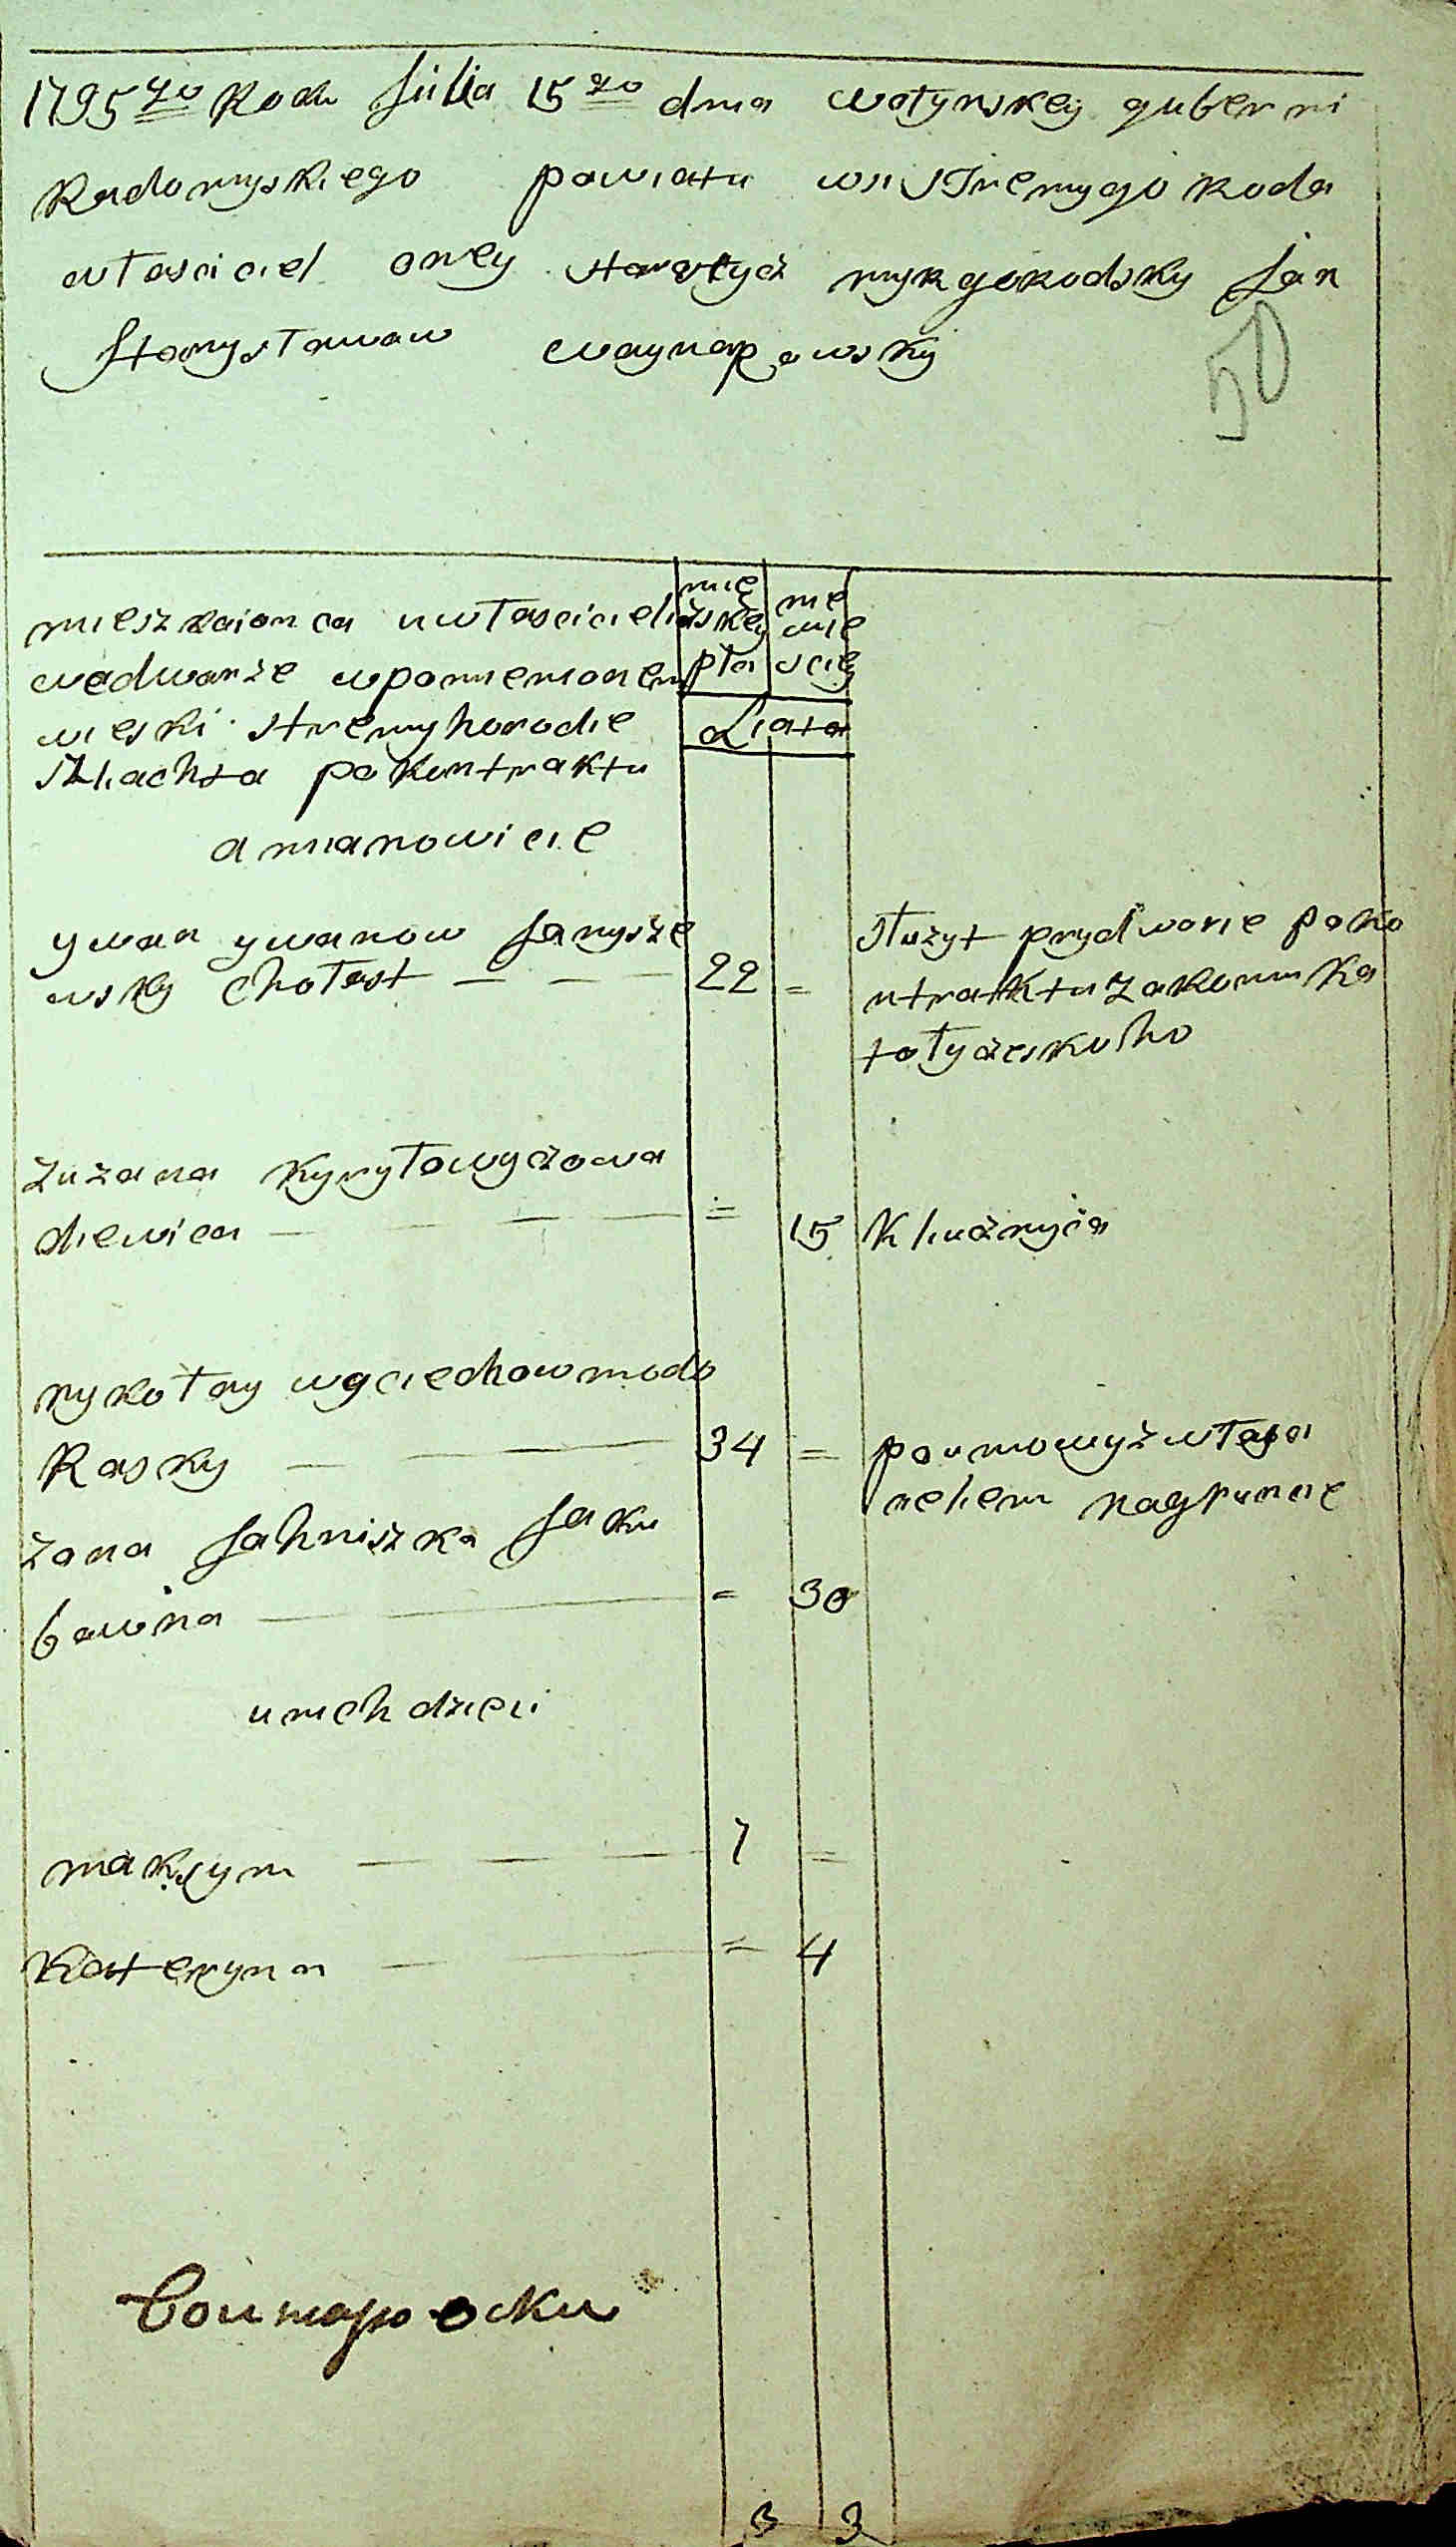 1795go Roku Julia 15go dnia wołynskey guberni
Radomyskiego powiatu wsi Stremygoroda
własciciel oney starostycz myrgorodsky Jan
Stanysławow waynarowsky
50
mieszkaionca uwłasciciela
wedwarze wpomienionem
wieski stremyhorodie
szliachta pokontraktu
amianowicie
męzskey płci
niewiescię
Liata
ywan ywanow Janysze
wsky chołast — — 22 =
słuzyt prydworie poko
ntraktu zakomu ka
tołyczeskoho
zuzana kyryłowyczowa
diewica — — = 15 kliucznyca
mykołay woyciechow modo
Rasky — — 34 =
poumowyzwłasci
cieliem nagruncie
zona Jahniszka Jaku
bowna — = 30
unich dzieci
maksym — — — 7 =
Katerynа — — = 4
3 3